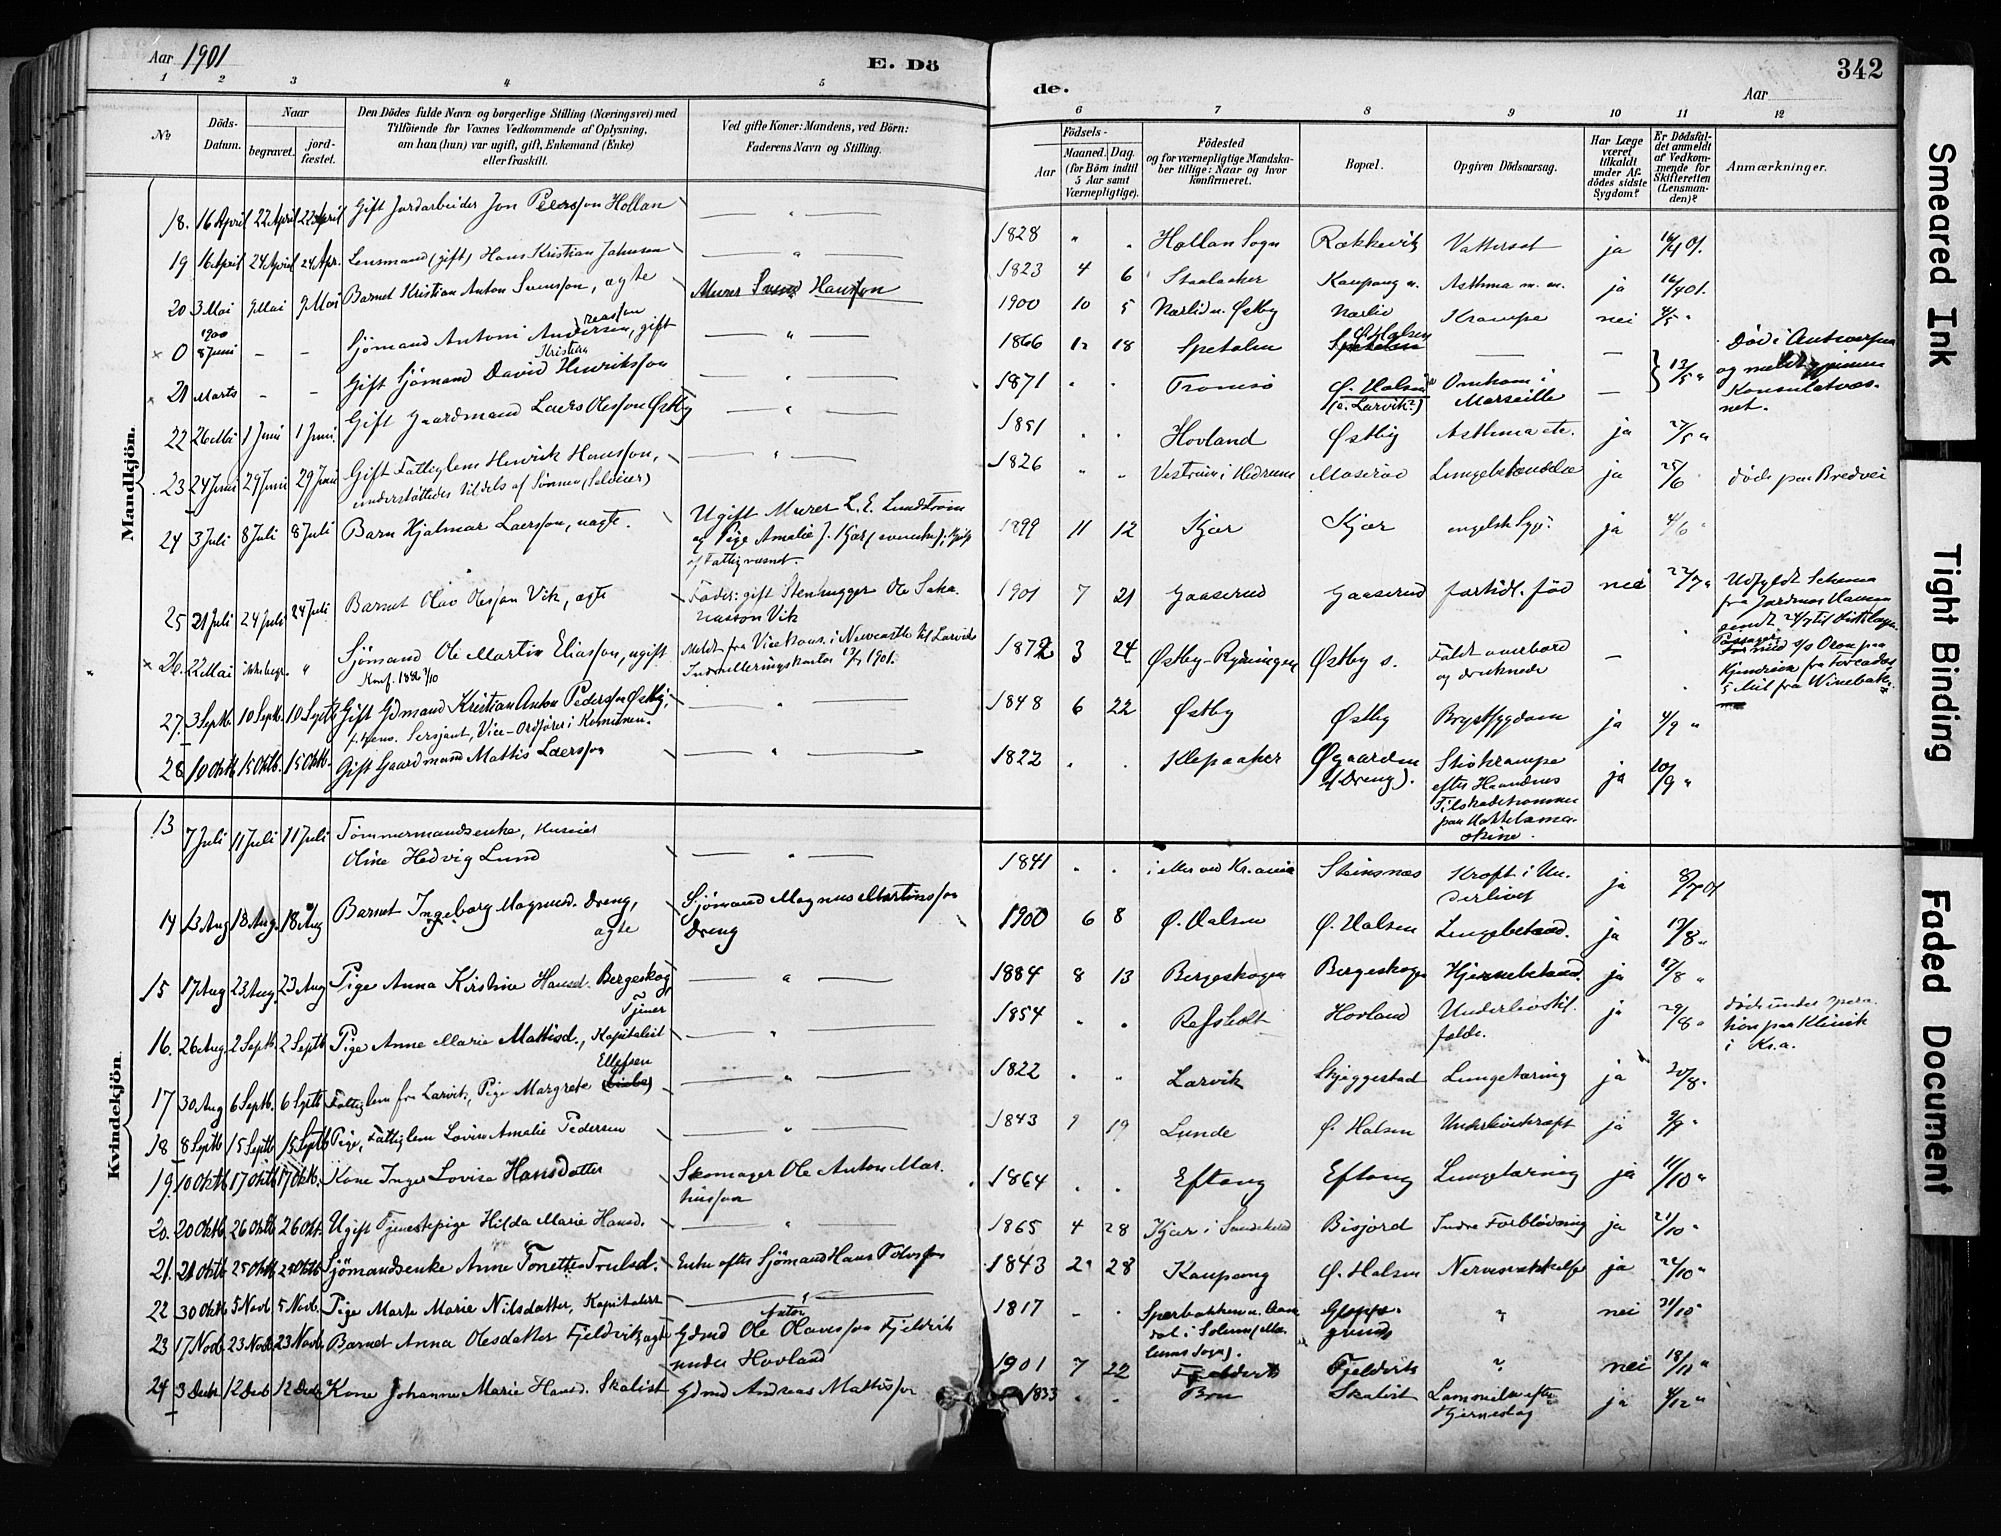 Aar 1901
E. Dö
de.
Aar
342
1 2 3 4 5 6 7 8 9 10 11 12
No
Döds-Datum.
Naar
begravet.
jord-fæstet.
Den Dödes fulde Navn og borgerlige Stilling (Næringsvei) med
Tilföiende for Voxnes Vedkommende af Oplysning,
om han (hun) var ugift, gift, Enkemand (Enke)
eller fraskilt.
Ved gifte Koner: Mandens, ved Börn:
Faderens Navn og Stilling.
Födsels-
Aar
Maaned. Dag.
(for Börn indtil
5 Aar samt
Værnepligtige).
Födested
og for værnepligtige Mandska-
ber tillige: Naar og hvor
konfirmeret.
Bopæl.
Opgiven Dödsaarsag.
Har Læge
været
tilkaldt
under Af-
dödes sidste
Sygdom?
Er Dödsfal-
det anmeldt
af Vedkom-
mende for
Skifteretten
(Lensman-
den)?
Anmærkninger.
Mandkjön.
18. 16 April 22 April 22 April Gift Jordarbeider Jon Peersson Hollan — " — 1828 " " Hollan Sogn Vattersot ja 16/4 01.
19 16 April 24 April 24 Apr. Lensmand (gift) Hans Kristian Jahnsen — " — 1823 4 6 Staalaker Kaupang n. Asthma m. m. ja 16/4 01.
20 3 Mai 9 Mai 9 Mai Barnet Kristian Anton Svensson, ægte Murer Svend Hansson 1900 10 5 Nærlid u. Østby Nærlid Krampe nei 4/5 "
x 0 1900 8 Juni — — Sjömand Antoni Andersen, gift — " — 1866 12 18 Spetalen Ø. Halsen — — Död i Antwerpen
x 21 Marts — — Gift Sjömand David Kristian Henriksson — " — 1871 " " Tromsö Ø. Halsen (e. Larvik?) Omkom i Marseille — 13/5 " og meldt gjennem Konsulatvæs-
net.
22 26 Mai 1 Juni 1 Juni Gift Gaardmand Laers Olesson Østby — " — 1851 " " Hovland Østby Asthma etc. ja 27/5 "
23 24 Juni 29 Juni 29 Juni Gift Fattiglem Henrik Hansson, — " — 1826 " " Vestrum i Hedrum Maseröd Lungebetændelse ja 25/6 döde paa Bredvei
understöttedes tildels af Sönnen (Seldeier)
24 3 Juli 8 Juli 8 Juli Barn Hjalmar Laersson, uægte. Ugift Murer L. E. Lundström 1899 11 12 Kjær Kjær engelsk Syge ja 4/6 "
og Pige Amalie J. Kjær (svenske); Hjelp
af Fattigvæsnet.
25 21 Juli 24 Juli 24 Juli Barnet Olav Olesson Vik, ægte Fader: gift Stenhugger Ole Saka- 1901 7 21 Gaaserud Gaaserud fortidl. föd nei 22/7 " Udfyldt Schema
riasson Vik
x 26. 22 Mai ikke begr. " Sjömand Ole Martin Eliasson, ugift Meldt fra Vicekons. i Newcastle til Larviks 1872 3 24 Østby-Rydningen Østby s. Faldt overbord og druknede —
Konf. 1886 3/10 Indrulleringskontor 17/7 1901.
27. 3 Septb. 10 Septb. 10 Septb. Gift Gdmand Kristian Anton Pedersson Østby, — " — 1848 6 22 Østby Østby Brystsygdom ja 4/9 "
f. hens. Sersjant, Vice-Ordförer i Kommunen.
28 10 Oktb. 15 Oktb. 15 Oktb. Gift Gaardmand Mattis Laersson — " — 1822 " " Klepaaker Øgaarden u/ Dreng). Stivkrampe ja 10/9 "
efter Haandens
Tilskadekommen
paa Hakkelsma-
skine.
Kvindekjön.
13 7 Juli 11 Juli 11 Juli Tömmermandsenke, Huseier
Oline Hedvig Lund — " — 1841 " " i eller ved Kr.ania Steinsnæs Kræft i Un-
derlivet ja 8/7 01
14 13 Aug 18 Aug. 18 Aug Barnet Ingeborg Magnusd. Dreng, ægte Sjömand Magnus Martinsson Dreng 1900 6 8 Ø. Halsen Ø. Halsen Lungebetænd. ja 13/8 "
15 17 Aug 23 Aug. 23 Aug Pige Anna Kirstine Hansd. Bergeskog — " — 1884 8 13 Bergeskogen Bergeskogen Hjernebetænd. ja 17/8 "
Tjener
16. 26 Aug. 2 Septb. 2 Septb Pige Anne Marie Mattisd., Kapitalist — " — 1854 " " Refsholt Hovland Underlivstil-
fælde. ja 29/8 " döde under opera-
tion paa Klinik
i Kr.a.
17 30 Aug 6 Septb. 6 Septb Fattiglem fra Larvik, Pige Margrete Ellefsen — " — 1822 " " Larvik Skjeggestad Lungetæring ja 20/8 "
18 8 Septb 15 Septb 15 Septb Pige, Fattiglem Lovise Amalie Pedersen — " — 1843 9 19 Lunde Ø. Halsen Underlivskræft ja 9/9 "
19. 10 Oktb. 17 Oktb. 17 Oktb. Kone Inger Lovise Hansdatter Skomager Ole Anton Mar-
tiusson 1864 " " Eftang Eftang Lungetæring ja 11/10 "
20. 20 Oktb. 26 Oktb 26 Okt. Ugift Tjenestepige Hilda Marie Hansd. — " — 1865 4 28 Kjær i Sandeherred Bisjord Indre Forblödning ja 21/10 "
21. 21 Oktb 25 Oktb 25 Oktb Sjömandsenke Anne Tonette Trulsd. Enke efter Sjömand Hans 1843 2 28 Kaupang Ø. Halsen Nervesvækkelse ja 22/10 "
22 30 Oktb. 5 Novb. 5 Novb. Pige Marte Marie Nilsdatter, Kapitalist — " — 1817 " " Sperbakken u. Aam-
dal i Solum (Me-
lums Sogn). Gloppe-
grund " nei 31/10
23 17 Novb. 23 Novb. 23 Novb. Barnet Anna Olesdatter Fjeldvik, ægte Gdmd Ole Anton Olavesson Fjeldvik
under Hovland 1901 7 22 Fjeldvik Fjeldvik ? nei 18/11 "
24 3 Decb 12 Decb 12 Decb Kone Johanne Marie Hansd. Skalist Gdmd Andreas Mattisson 1833 " " Bro Skalist Lammelse efter
Hjerneslag ja 4/12 "
Smeared Ink
Tight Binding
Faded Document